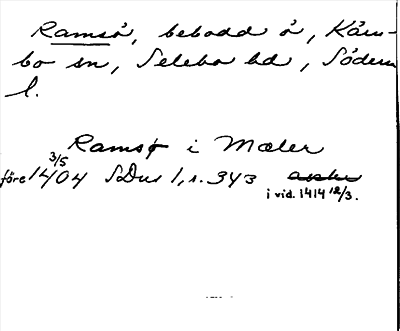 Ramsö, bebodd ö, Kärn-
bo sn, Selebo hd, Söderm
l.
Ramsø i Mæler
före 14 3/5 04 SDns 1, s. 343 avskr
i vid. 1414 12/3.